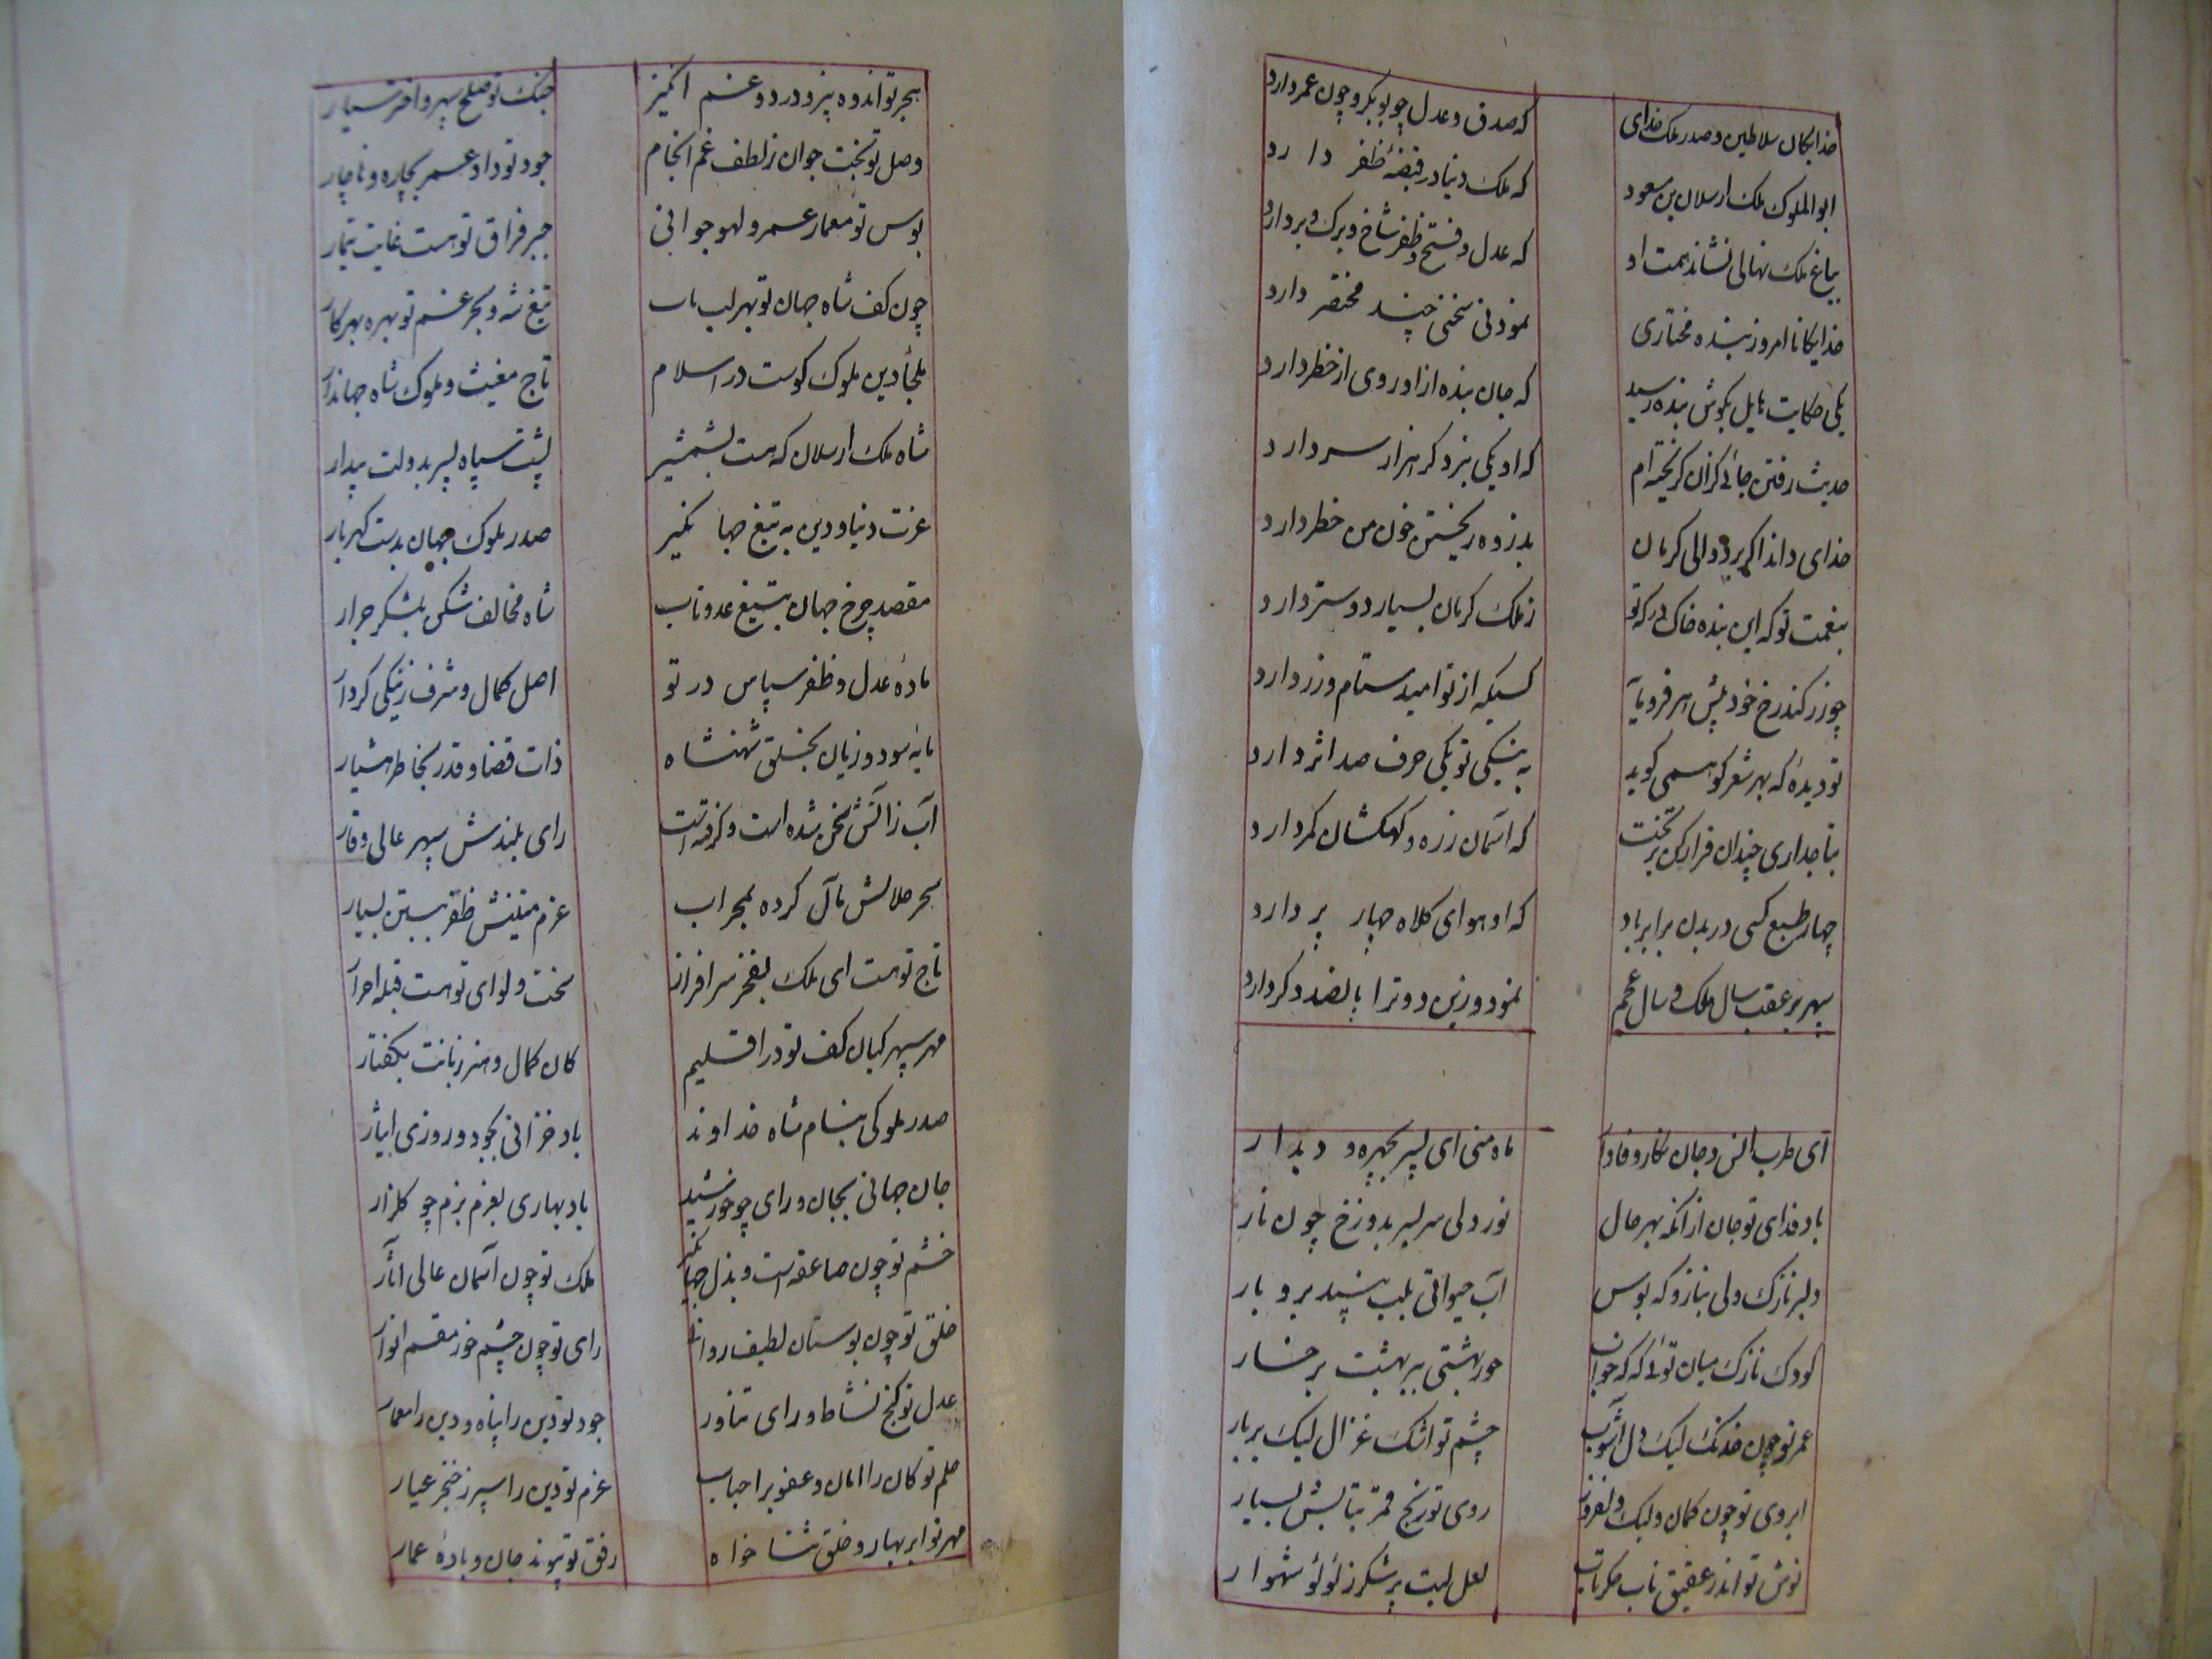 خدایکان سلاطین و صدر ملک خدای
که صدق و عدل چو بوبکر و چون عمر دارد
ابوالملوک ملک ارسلان بن مسعود
که ملک دنیا در قبضهٔ ظفر دارد
بباغ ملک نهالی نشاند همت او
که عدل و فتح و ظفر شاخ و برک و بر دارد
خدایکانا امروز بنده مختاری
نمودنی سخنی چند مختصر دارد
یکی حکایت هایل بکوش بنده رسید
که جان بنده از او روی از خطر دارد
حدیث رفتن جائی کزان کریخته‌ام
که او یکی نبرد کر هزار سر دارد
خدای داند اکر برد والی کرمان
بدزده ریختن خون من خطر دارد
بنعمت تو که این بنده خاک درکه تو
ز ملک کرمان بسیار دوستر دارد
چو زر کند رخ خود پیش هر فرومایه
کسیکه از تو امید ستام و زر دارد
تو دیدهٔ که بهر شعر کو همی کوید
به نیکی تو یکی حرف صد اثر دارد
بتاجداری چندان قرار کن بر تخت
که آسمان زره و کهکشان کمر دارد
چهار طبع کسی در بدن برابر باد
که او هوای کلاه چهار پر دارد
سپهر بر عقب سال ملک و سال عجم
نمود و زین دو ترا پانصد دکر دارد
ای طرب انس و جان نکار وفادار
ماه منی ای پسر بچهره و دیدار
باد فدای تو جان ازانکه بهر حال
نور دلی سر بسر بدو زخ چون نار
دلبر نازک دلی بناز و که بوس
آب حیواتی بلب بپسند برو بار
کودک نازک میان توئی که که جولان
حور بهشتی ببر بهشت برخسار
عمر تو چون خدنک لیک دل آشوب
چشم تو اشک غزال لیک بربار
ابروی تو چون کمان ولیک دلفروز
روی تو رنج قمر بتابش بسیار
نوش تو اندر عقیق ناب شکریاب
لعل لبت پر شکر ز لؤلؤ شهوار
هجر تو اندوه پرور درد و غم انکیز
جنک تو صلح سپهر و اختر سیار
وصل تو بخت جوان ز لطف غم انجام
جود تو داد عمر بچاره و ناچار
بوس تو معمار عمر و لهو جوانی
جبر فراق تو هست غایت تیمار
چون کف شاه جهان تو بهر لب باب
تیغ شه و بحر غم تو بهره بهر کار
ملجأ دین ملوک کوست در اسلام
تاج مغیث و ملوک شاه جهاندار
شاه ملک ارسلان که هست بشمشیر
پشت سپاه پسر بدولت بیدار
عزت دنیا و دین به تیغ جهانکیر
صدر ملوک جهان بدست کهربار
مقصد چرخ جهان بتیغ عدوتاب
شاه مخالف شکن بلشکر جرار
مادهٔ عدل و ظفر سپاس در تو
اصل کمال و شرف ز نیکی کردار
مایه سود و زیان بخسلق شهنشاه
ذات قضا و قدر بخاطر هشیار
آب ز آتش سخن شده است و کرفته است
رای بلندش سپهر عالی و قار
سحر حلالش مآل کرده بمحراب
عزم متینش ظفر ببستن بسیار
تاج تو هست ای ملک بفخر سرافراز
تخت و لوای تو هست قبله احرار
مهر سپهر کیان کف تو در اقلیم
کان کمال و هنر زبانت بکفتار
صدر ملوکی بنام شاه خداوند
باد خزانی بجود و روزی ایثار
جان جهانی بجان و رای چو خورشید
باد بهاری بعزم بزم چو کلزار
خشم تو چون صاعقه است و بذل جهانکیر
ملک تو چون آسمان عالی آثار
خلق تو چون بوستان لطیف روانه
رای تو چون چشم خور مقسم انوار
عدل تو کنج نشاط و رای تناور
جود تو دین را پناه و دین را معمار
حلم تو کان را امان و عفو بر احباب
عزم تو دین را سپر ز خنجر عیار
مهر تو ابر بهار و خلق ثناخواه
رفق تو پیوند جان و بادهٔ عمار